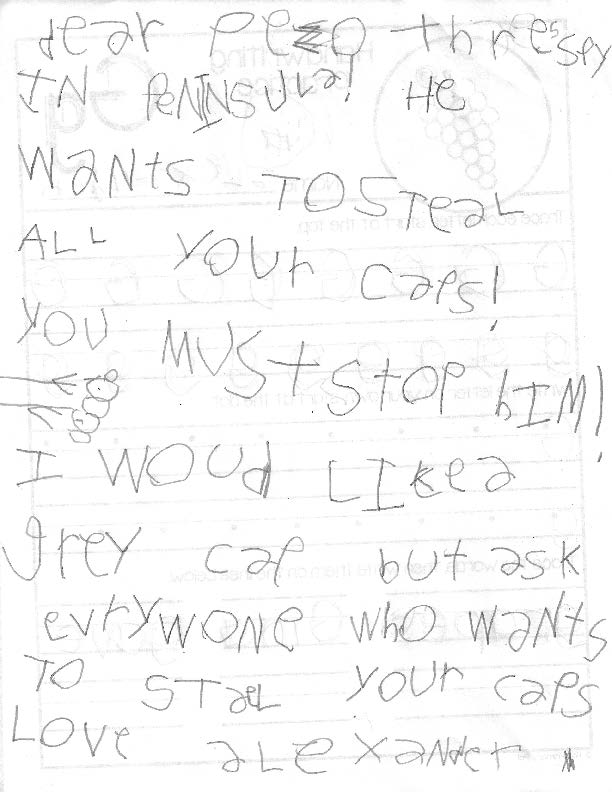 dear Pezo thres spy
IN PeNINSULa! He
WaNts TO STeaL
ALL YOUr Caps!
YOU MUSt StOP hIM!
I WOUd LIKe a
grey cap but ask
evrywone who wants
TO STaeL YOUr caps
LOVe aLexander